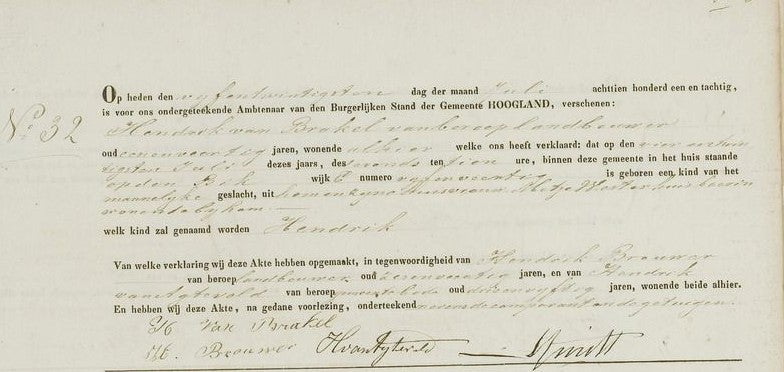 No 32
Op heden den vyfentwintigsten dag der maand Juli achttien honderd een en tachtig,
is voor ons ondergeteekende Ambtenaar van den Burgerlijken Stand der Gemeente HOOGLAND, verschenen:
Hendrik van Brakel van beroep landbouwer
oud eenenveertig jaren, wonende alhier welke ons heeft verklaard: dat op den vier entwin
tigsten Juli dezes jaars, des avonds ten tien ure, binnen deze gemeente in het huis staande
op den wijk numero vyfenveertig is geboren een kind van het
mannelyke geslacht, uit hem en zyne huisvrouw Metje
wonende by hem
welk kind zal genaamd worden Hendrik
Van welke verklaring wij deze Akte hebben opgemaakt, in tegenwoordigheid van Hendrik Brouwer
van beroep landbouwer oud jaren, en van Hendrik
van Agteveld van beroep oud jaren, wonende beide alhier.
En hebben wij deze Akte, na gedane voorlezing, onderteekend nevens de comparant en de getuigen.
H van Brakel
H. Brouwer HvanAgteveld